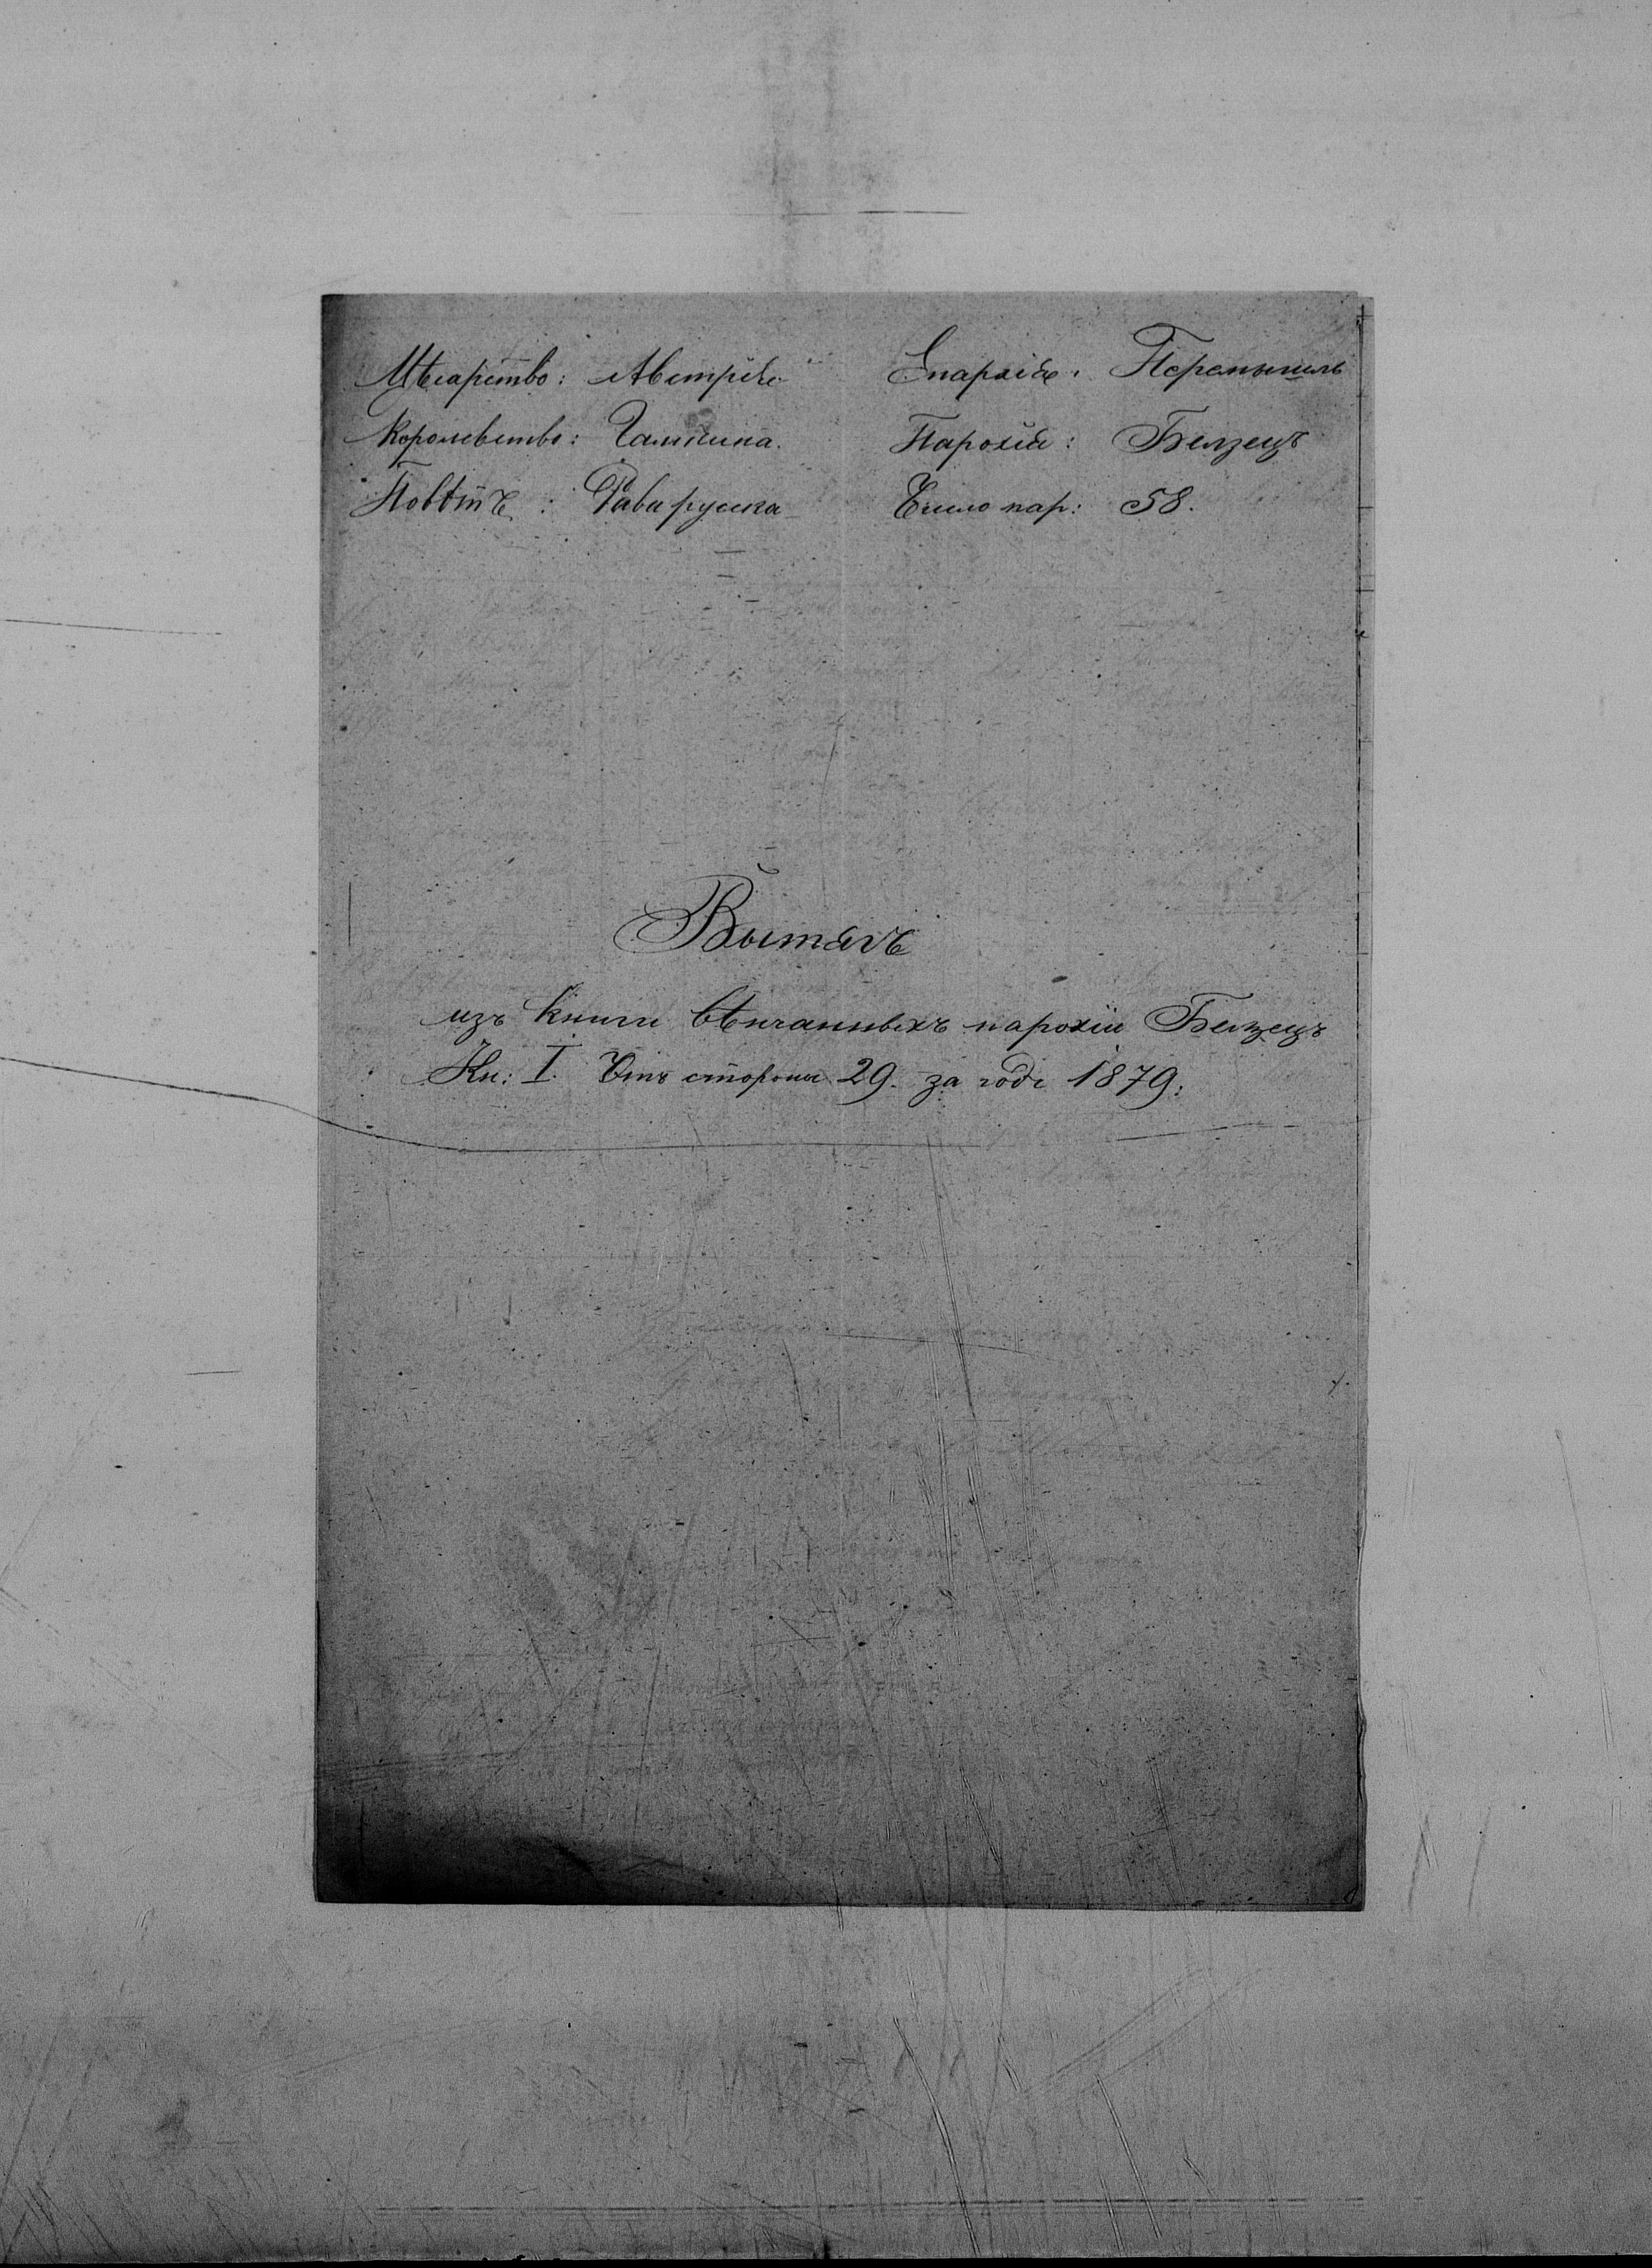 Цѣсарство: Австрія Епархія: Перемышль
Королевство: Галичина. Парохія: Белзецъ
Повѣтъ: Рава руска Число пар: 58.
Вытягъ
изъ книги вѣнчанныхъ парохіи Белзецъ
Кн: I. Отъ стороны 29. за годъ 1879.